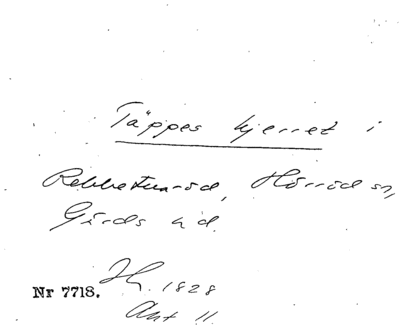 Täppes kjerret i
Rebbetuaröd, Hörröds sn,
Gärds hd.
Nr 7718. 1828
Akt 11